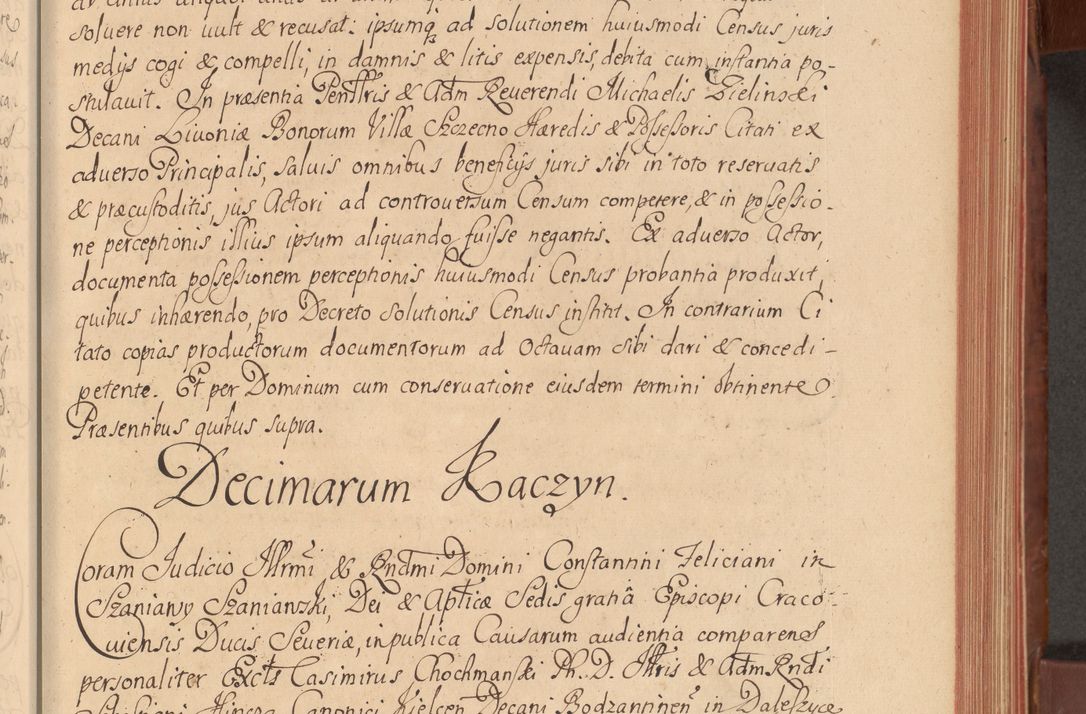 soluere non uult & recusat: ipsumq3 ad solutionem huiusmodi Census juris
medijs cogi & compelli, in damnis & litis expensis, debita cum instantia po-
stulauit. In præsentia Penllris & Adm Reverendi Michaelis Zielinski
Decani Livoniæ Bonorum Villæ Szczecno Hæredis & Possessoris Citati ex
adverso Principalis, salvis omnibus beneficijs juris sibi in toto reservatis
& præcustoditis, jus Actori ad controversum Censum competere, & in possessio-
ne perceptionis illius ipsum aliquando fuisse negantis. Ex adverso Actor,
documenta possessionem perceptionis huiusmodi Census probantia produxit,
quibus inhærendo, pro Decreto solutionis Census institit. In contrarium Ci
tato copias productorum documentorum ad Octavam sibi dari & concedi-
petente. Et per Dominum cum conservatione eiusdem termini obtinente.
Præsentibus quibus supra.
Decimarum Kaczyn.
Coram Judicio Illrmi & Rndmi Domini Constantini Feliciani in
Szaniawy Szanianski, Dei & Apticæ Sedis gratia Episcopi Craco-
viensis Ducis Severiæ, in publica Causarum audientia comparens
personaliter Excts Casimirus Chochmanski Ph. D. Illris & Adm Rndi
Canonici Kielcen Decani Bodzantinen in Daleszyce